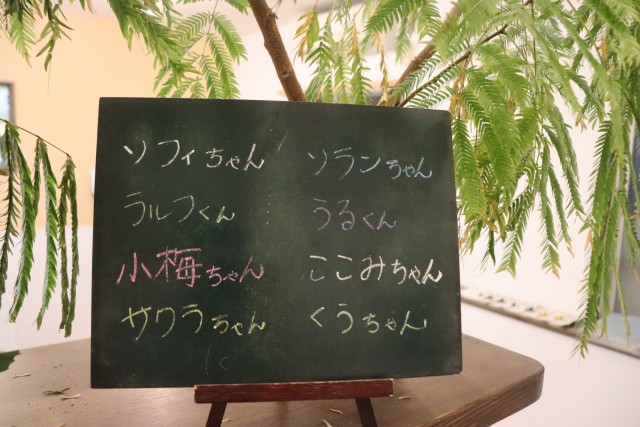 ソフィちゃん
ラルフくん
小梅ちゃん
サクラちゃん
ソランちゃん
うるくん
ここみちゃん
くうちゃん